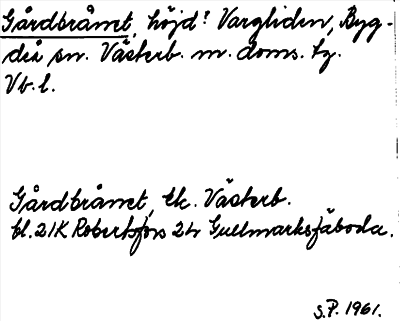 Gårdbråmet, höjd? Vargliden, Byg-
deå sn. Västerb. m. doms. tg.
Vb. l.
Gårdbråmet, ek. Västerb.
bl. 21K Robertsfors 2h Gullmarksfäboda.
S.P. 1961.